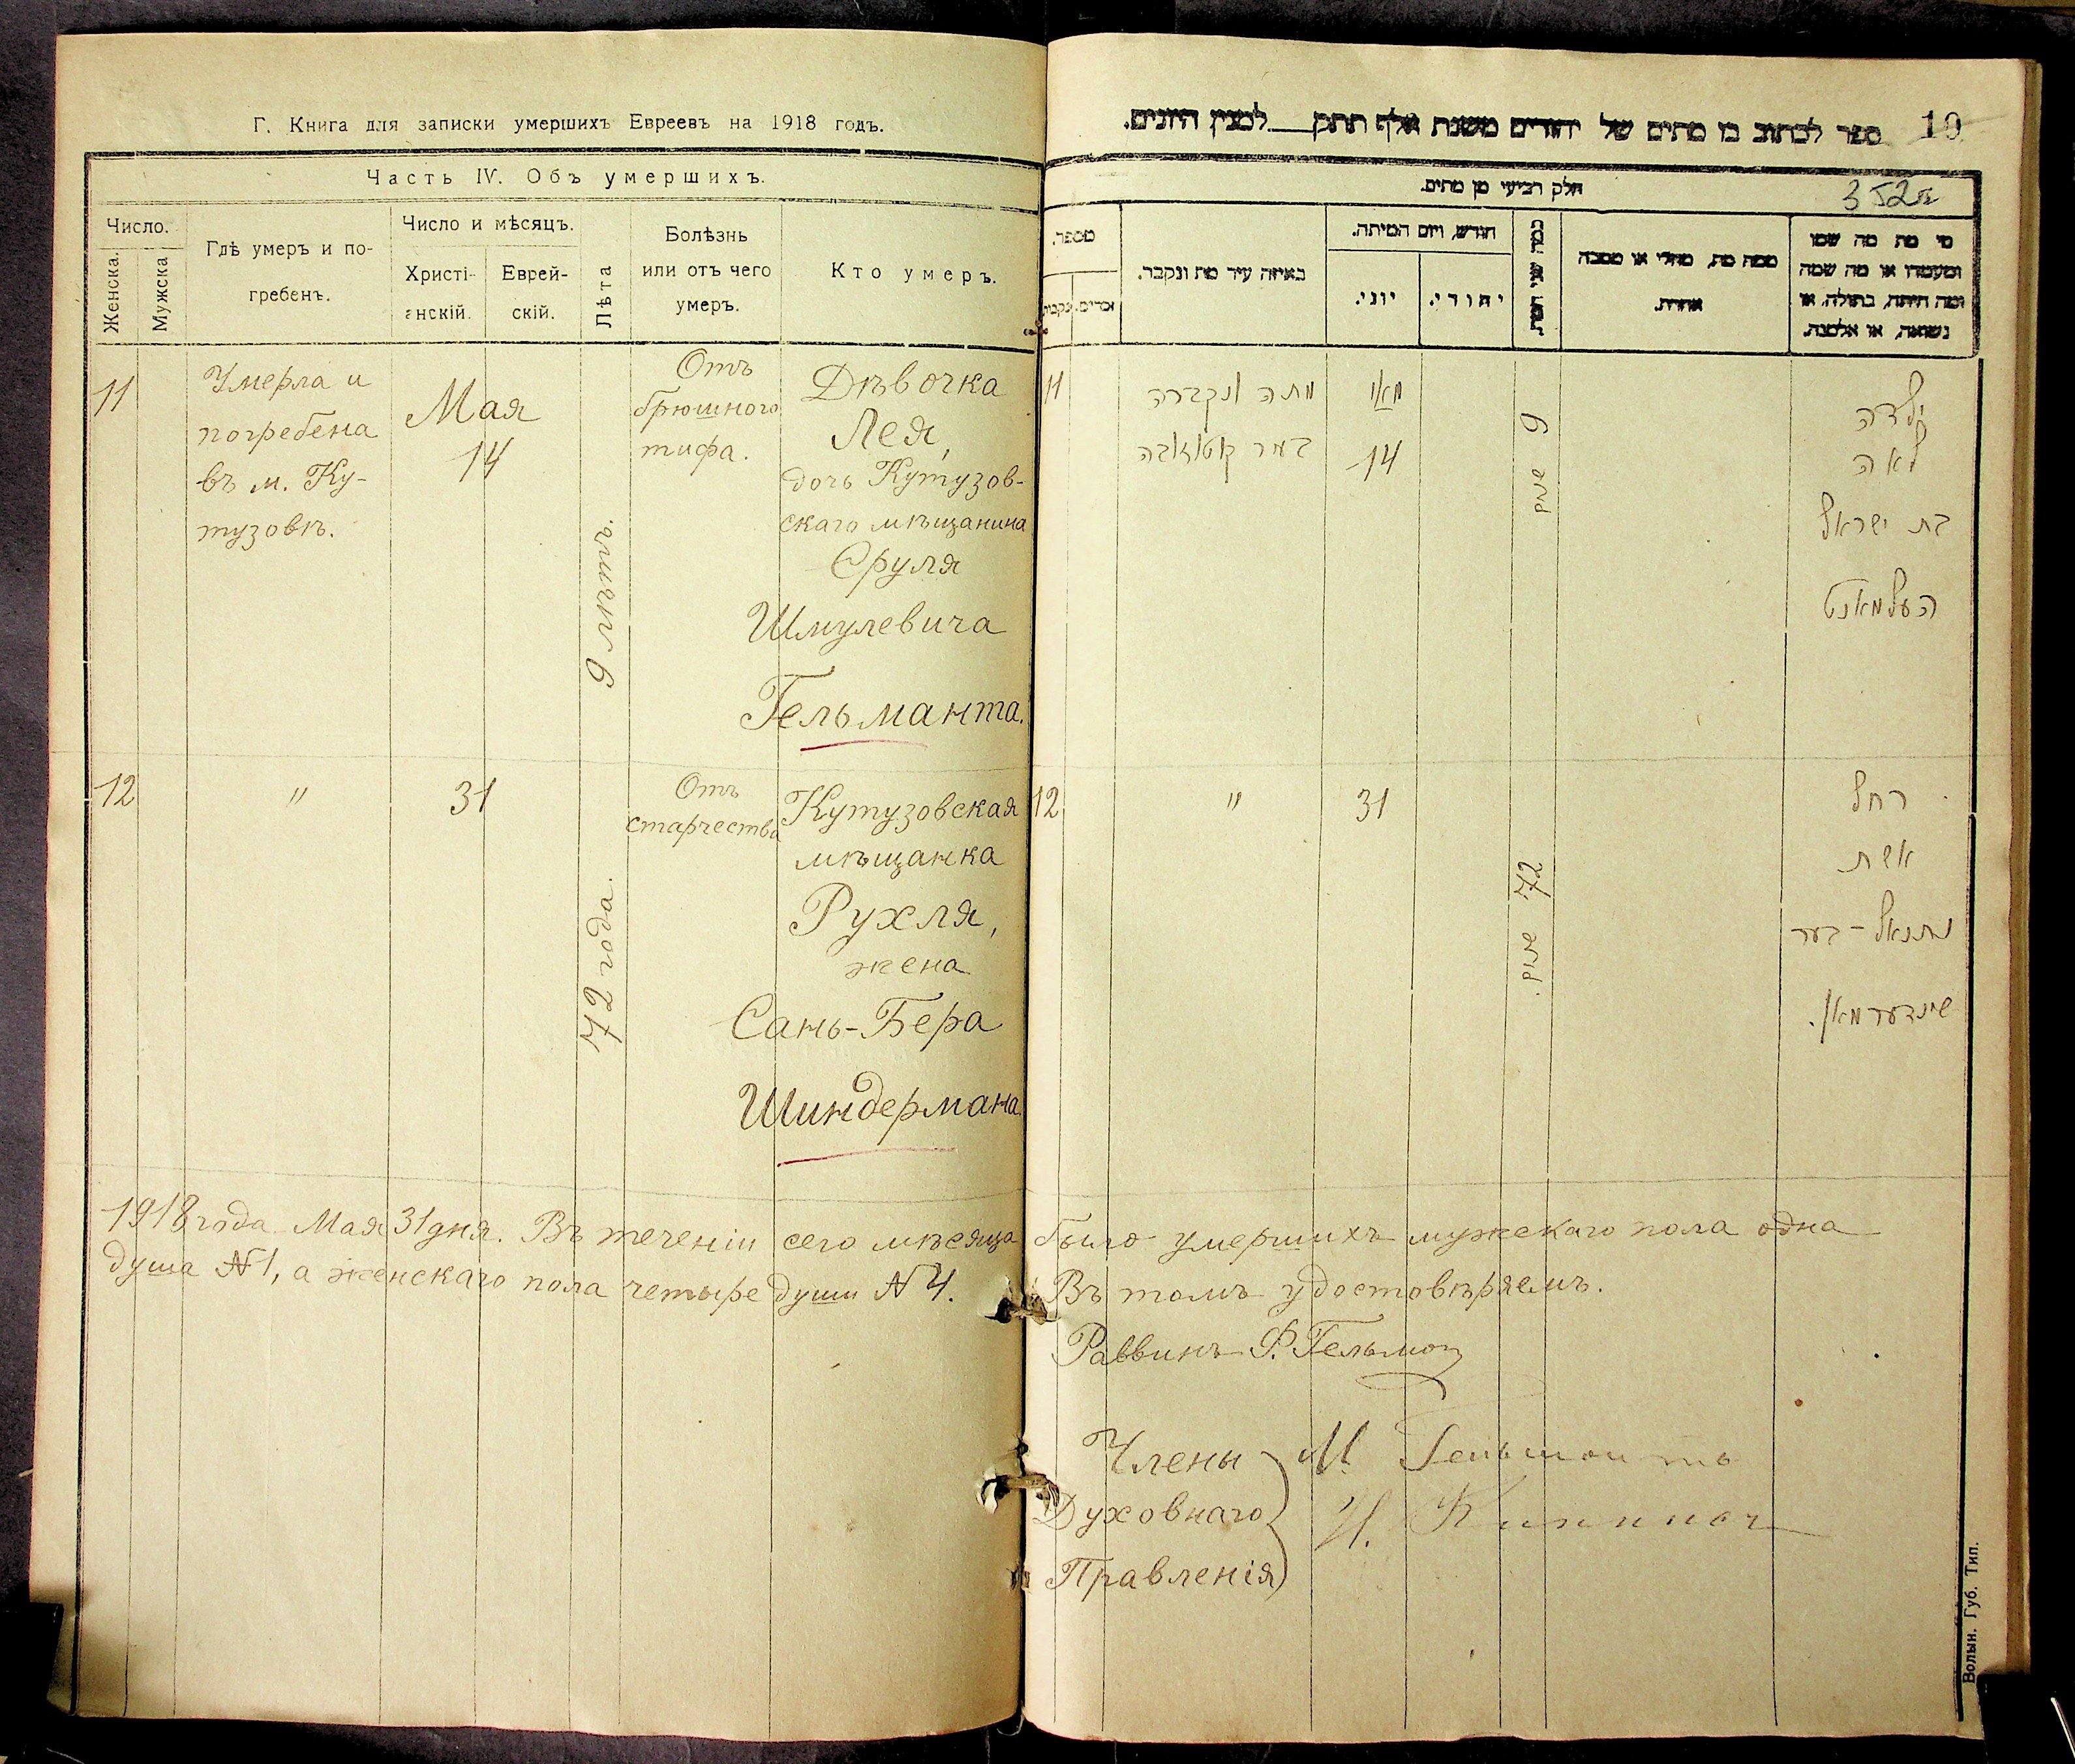 Г. Книга для записки умершихъ Евреевъ на 1918 годъ.
Часть IV. Объ умершихъ.
Число.
Женска.
Мужска
Гдѣ умеръ и по-
гребенъ.
Число и мѣсяцъ.
Христі-
анскій.
Еврей-
скій.
Лѣта
Болѣзнь
или отъ чего
умеръ.
Кто умеръ.
11
Умерла и
погребена
въ м. Ку-
тузовкѣ.
Мая
14
9 лѣтъ.
Отъ
брюшного
тифа.
Дѣвочка
Лея,
дочь Кутузов-
скаго мѣщанина
Сруля
Шмулевича
Гельманта.
12
"
31
72 года.
Отъ
старчества
Кутузовская
мѣщанка
Рухля,
жена
Сань-Бера
Шиндермана
ספר לכתוב בו מתים של יהודים משנת אלף תתק למנין היונים.
10
352
חלק רביעי מן מתים.
מספר.
נקבות
זכרים.
באיזה עיר מת ונקבר.
חודש, ויום המיתה.
יוני.
יהודי.
כמה שני המת.
ממה מת, מחלי או מסבה
אחרת.
מי מת מה שמו
ומעמדו או מה שמה
ומה היתה, בתולה, או
נשואה, או אלמנה.
11
מתה ונקברה
בעיר קוטוזובקה
מאי
14
9 שנים
ילדה
לאה
בת ישראל
העלמאנט
12
"
31
72 שנים.
רחל
אשת
נתנאל-בער
שינדערמאן.
1918 года Мая 31 дня. Въ теченіи сего мѣсяца было умершихъ мужскаго пола одна
душа №1, а женскаго пола четыре души №4. Въ томъ удостовѣряемъ.
Раввинъ Ф. Гельмон
Члены М. Гельмонтъ
Духовнаго И.
Правленія
Волын. Губ. Тип.